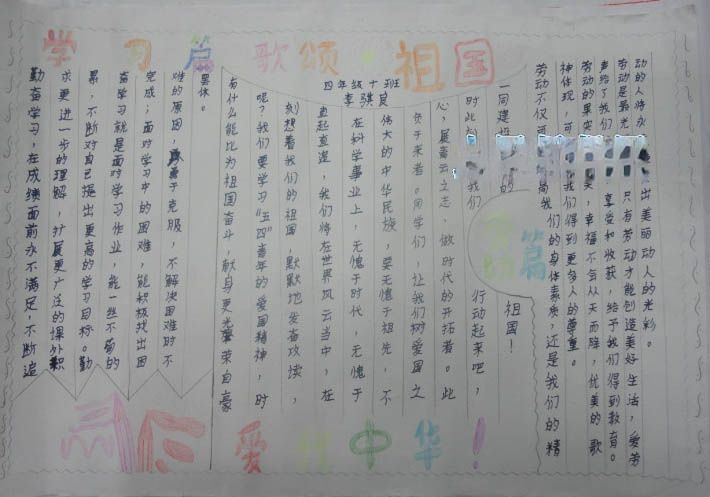 学习篇 歌颂·祖国
四年级十班
勤奋学习,在成绩面前永不满足,不断追
求更进一步的理解,扩展更广泛的课外积
累,不断对自己提出更高的学习目标。勤
奋学习就是面对学习作业,能一丝不苟的
完成;面对学习中的困难,能积极找出困
难的原因,勇于克服,不解决困难时不
罢休。
有什么能比为祖国奋斗,献身更光荣自豪
呢?我们要学习“五四”青年的爱国精神,时
刻想着我们的祖国,默默地发奋攻读,
直起直追,我们将在世界风云当中,在
科学事业上,无愧于时代,无愧于
伟大的中华民族,要无愧于祖先,不
负于来者。同学们,让我们树爱国之
心,展青云之志,做时代的开拓者。此
时此 我们 行动起来吧,
一同建设 的 祖国!
篇
劳动不仅 高我们的身体素质,还是我们的精
神体现,可 我们得到更多人的尊重。
劳动的果实 美,幸福不会从天而降,优美的歌
声给了我们 享受和收获,给予我们得到教育。
劳动是最光 只有劳动才能创造美好生活,爱劳
动的人将永 出美丽动人的光彩。
爱我中华!